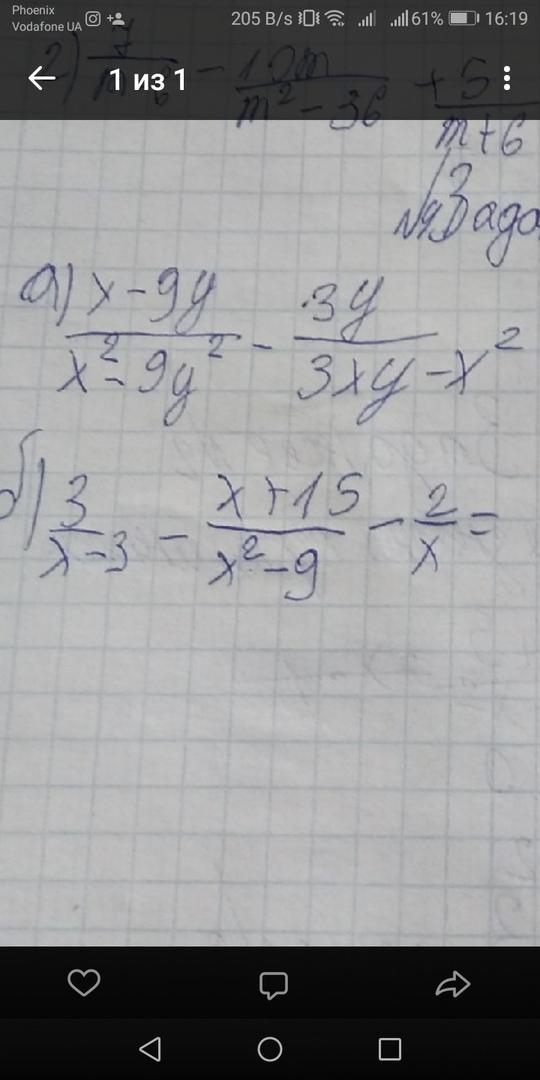 Phoenix
Vodafone UA
205 B/s 61% 16:19
1 из 1
2) 7/m-6 - 10m/m² - 36 + 5/m+6
№3
а) x-9y/x²-9y² - 3y/3xy-x²
б) 3/x-3 - x+15/x²-9 - 2/x =